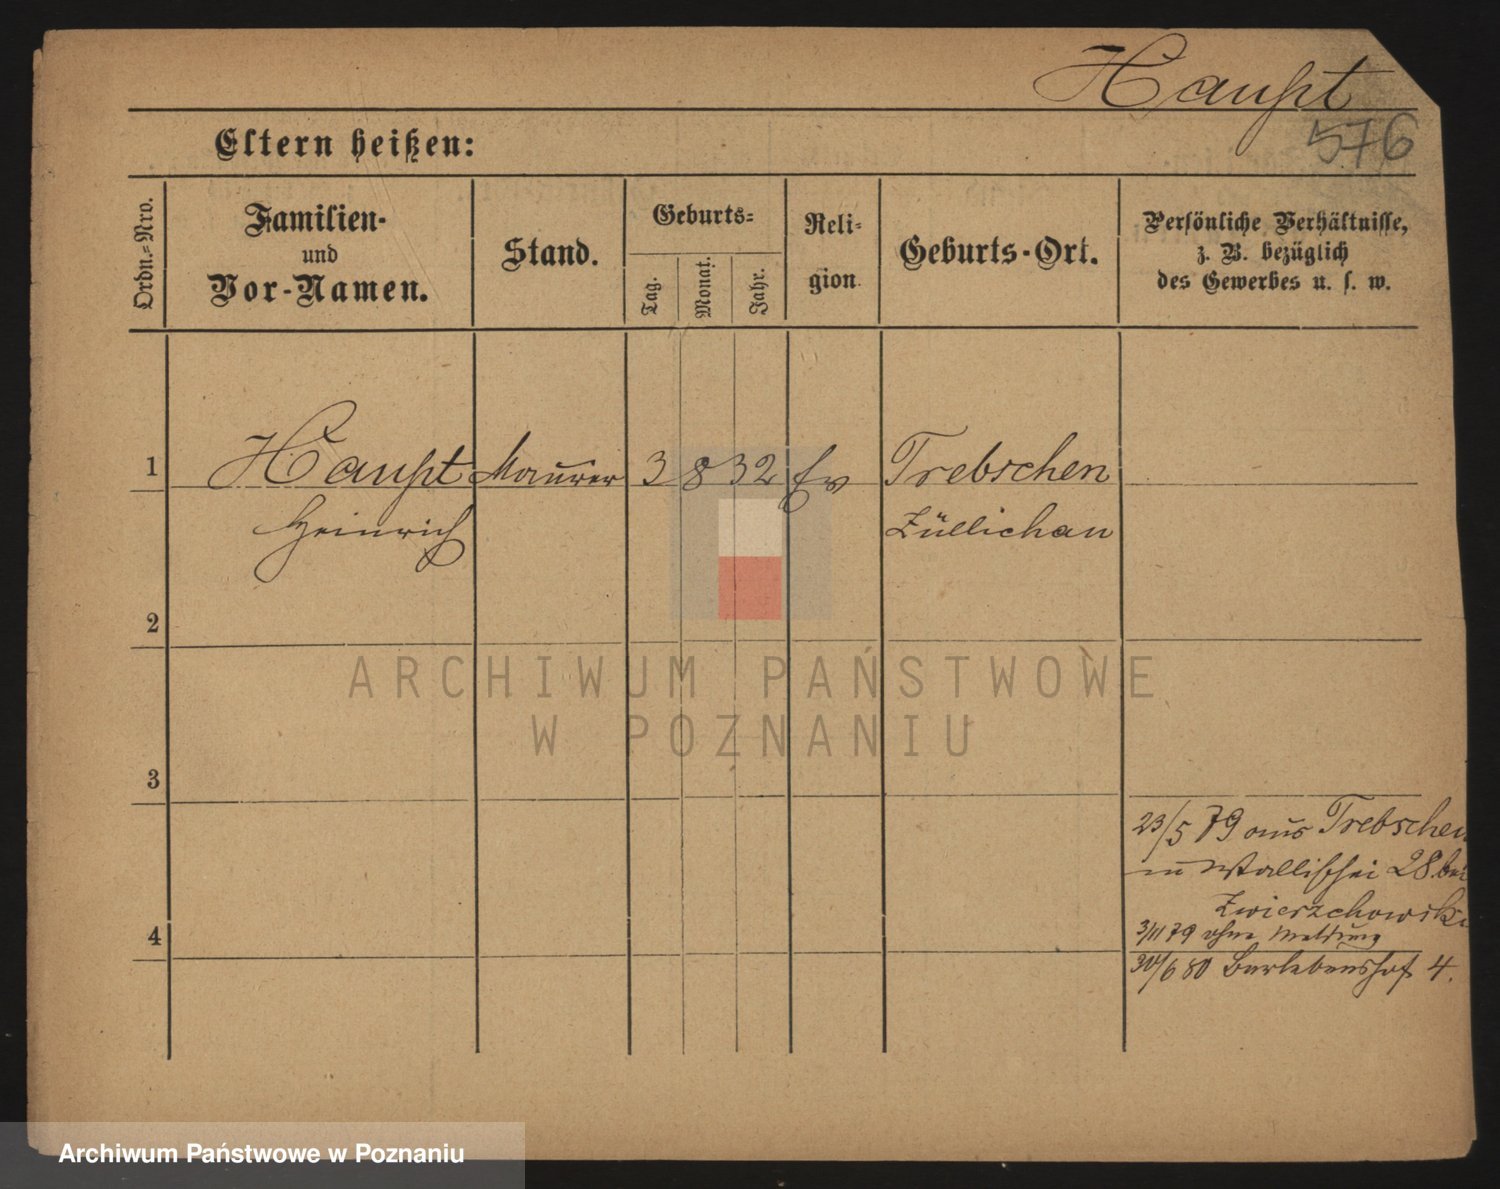 Haupt
576
Eltern heißen:
Ordn.=Nro.
Familien-
und
Vor-Namen.
Stand.
Geburts=
Tag.
Monat.
Jahr.
Reli=
gion
Geburts-Ort.
Persönliche Verhältnisse,
z. B. bezüglich
des Gewerbes u. s. w.
1 Haupt Maurer 3 8 32 Ev Trebschen
Heinrich Züllichau
2
ARCHIWUM PAŃSTWOWE
W POZNANIU
3
23/5 79 aus Trebschen
Wallischei 28 bei
Zwierzchowski
4 3/11 79 ohne Meldung
30/6 80 Berlebenshof 4.
Archiwum Państwowe w Poznaniu